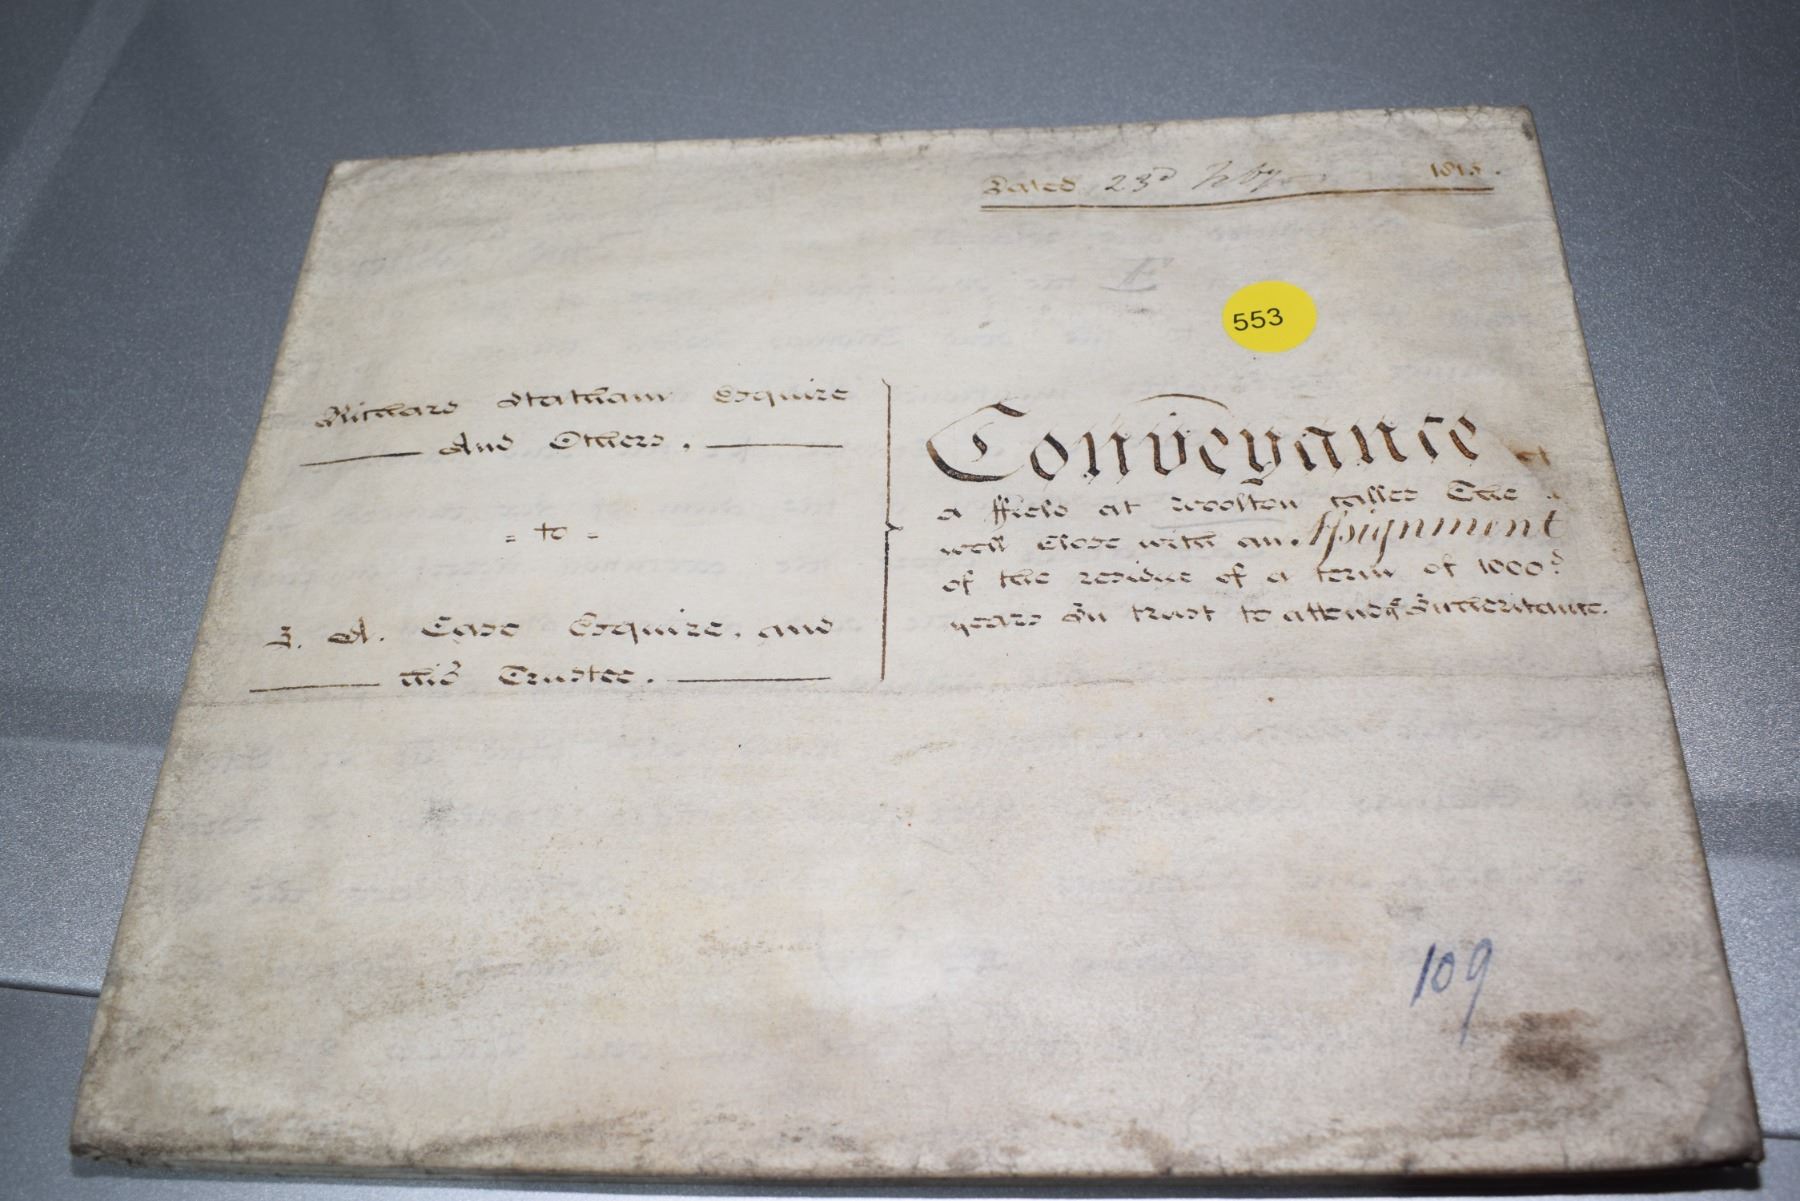 Dated 23d Feby 1815.
553
Richard Statham Esquire
And Others.
= to =
J. A. Case Esquire, and
his Trustee.
Conveyance of
a ffield at Woolton called The
well Close with an Assignment
of the residue of a term of 1000
years In trust to attend Inheritance.
109